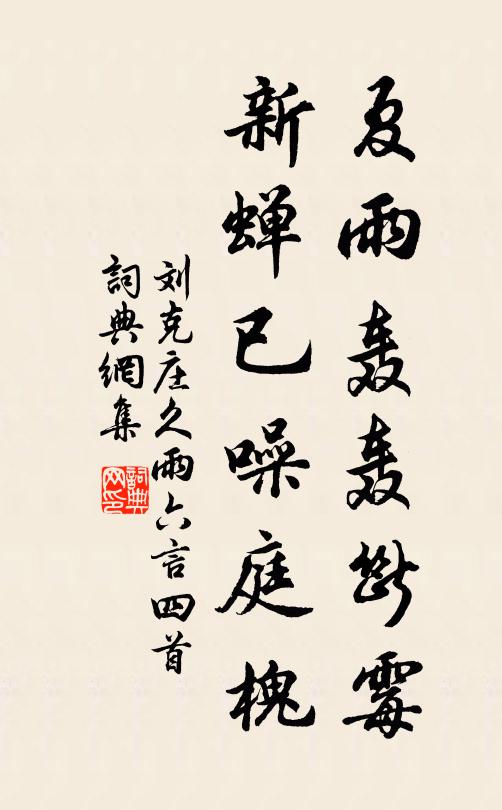 夏雨轰轰断霉
新蝉已噪庭槐
刘克庄久雨六言四首
詞典網集
詞典
网印